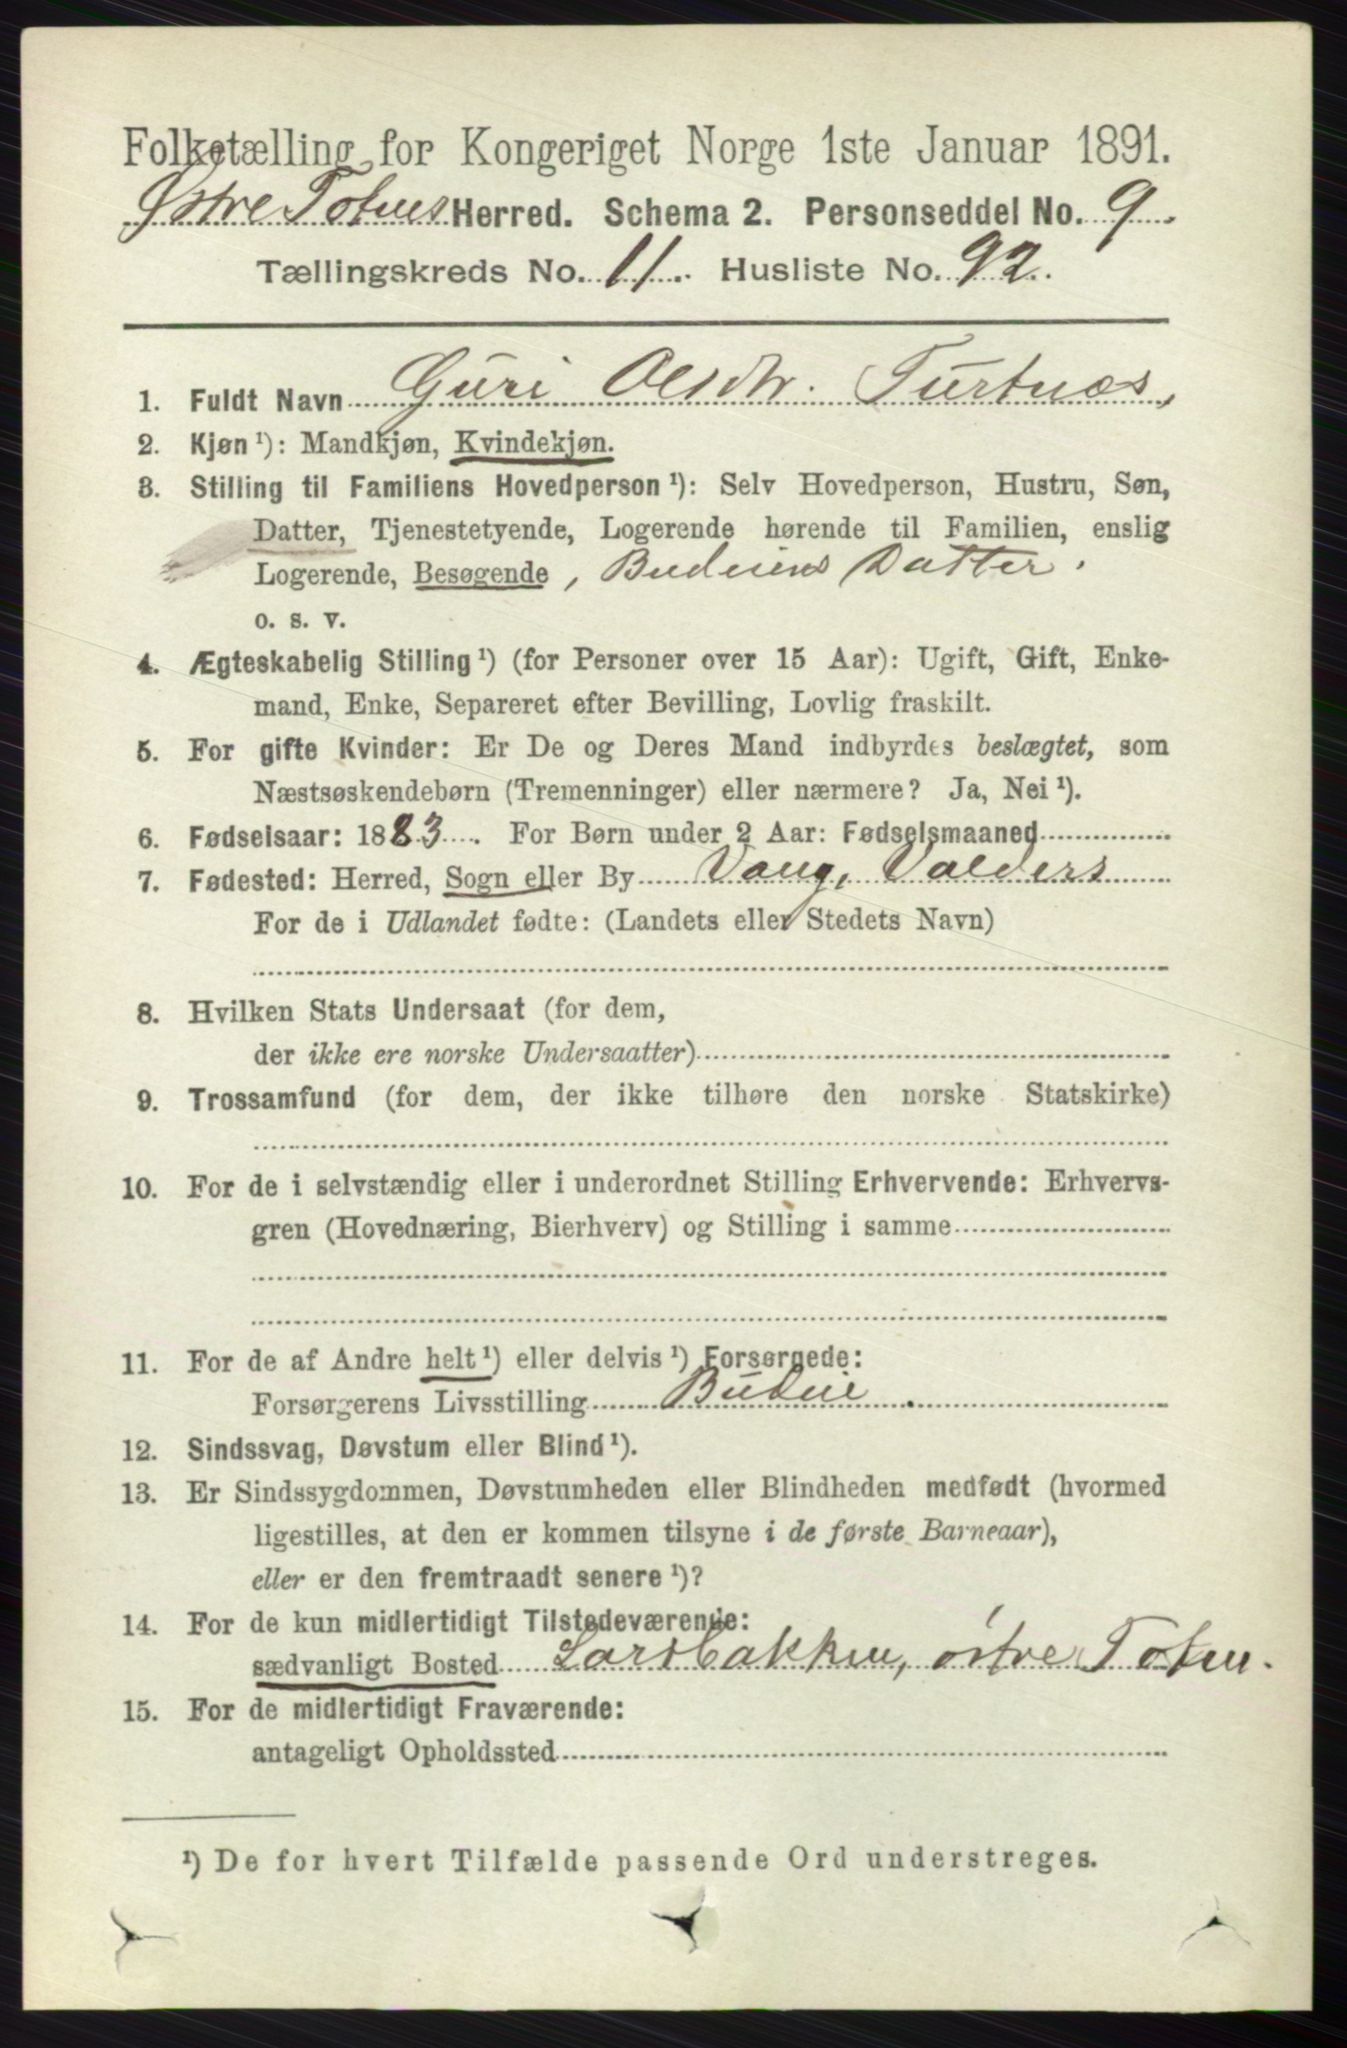 Folketælling for Kongeriget Norge 1ste Januar 1891.
Østre Totnes Herred. Schema 2. Personseddel No. 9.
Tællingskreds No. 11. Husliste No. 92.
1. Fuldt Navn Guri Olsdtr. Turtnæs,
2. Kjøn ¹): Mandkjøn, Kvindekjøn.
3. Stilling til Familiens Hovedperson ¹): Selv Hovedperson, Hustru, Søn,
Datter, Tjenestetyende, Logerende hørende til Familien, enslig
Logerende, Besøgende, Budeiens Datter.
o. s. v.
4. Ægteskabelig Stilling ¹) (for Personer over 15 Aar): Ugift, Gift, Enke-
mand, Enke, Separeret efter Bevilling, Lovlig fraskilt.
5. For gifte Kvinder: Er De og Deres Mand indbyrdes beslægtet, som
Næstsøskendebørn (Tremenninger) eller nærmere? Ja, Nei ¹).
6. Fødselsaar: 1883. For Børn under 2 Aar: Fødselsmaaned
7. Fødested: Herred, Sogn eller By Vang, Valders
For de i Udlandet fødte: (Landets eller Stedets Navn)
8. Hvilken Stats Undersaat (for dem,
der ikke ere norske Undersaatter)
9. Trossamfund (for dem, der ikke tilhøre den norske Statskirke)
10. For de i selvstændig eller i underordnet Stilling Erhvervende: Erhvervs-
gren (Hovednæring, Bierhverv) og Stilling i samme
11. For de af Andre helt ¹) eller delvis ¹) Forsørgede:
Forsørgerens Livsstilling Budeie.
12. Sindssvag, Døvstum eller Blind ¹).
13. Er Sindssygdommen, Døvstumheden eller Blindheden medfødt (hvormed
ligestilles, at den er kommen tilsyne i de første Barneaar),
eller er den fremtraadt senere ¹)?
14. For de kun midlertidigt Tilstedeværende:
sædvanligt Bosted Larsbakken, østre Toten.
15. For de midlertidigt Fraværende:
antageligt Opholdssted
¹) De for hvert Tilfælde passende Ord understreges.